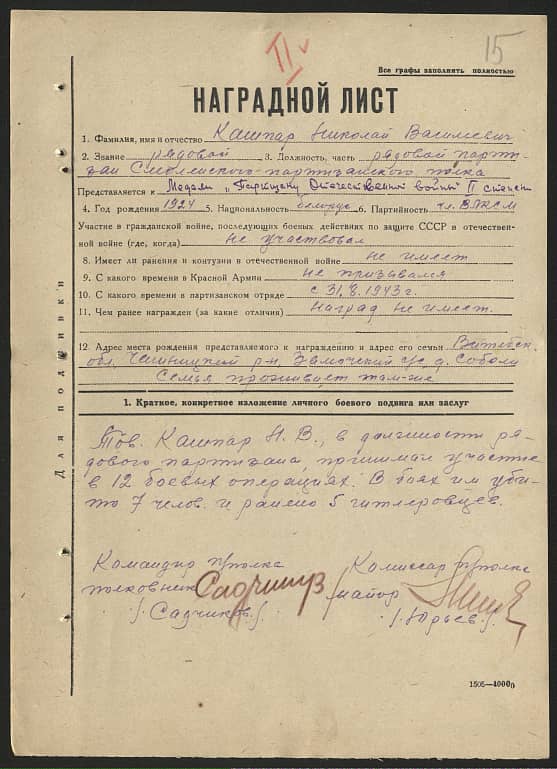 II v
15
Все графы заполнять полностью
НАГРАДНОЙ ЛИСТ
1. Фамилия, имя и отчество Кашпар Николай Васильевич
2. Звание рядовой 3. Должность, часть рядовой парти-
зан Смоленского партизанского полка
Представляется к Медали „Партизану Отечественной войны" II степени
4. Год рождения 1924 5. Национальность белорус 6. Партийность чл. ВЛКСМ
Участие в гражданской войне, последующих боевых действиях по защите СССР и отечествен-
ной войне (где, когда) не участвовал
8. Имеет ли ранения и контузии в отечественной войне не имеет
9. С какого времени в Красной Армии не призывался
10. С какого времени в партизанском отряде с 31.8.1943 г.
11. Чем ранее награжден (за какие отличия) наград не имеет.
12. Адрес места рождения представляемого к награждению и адрес его семьи Витебск.
обл. Чашницкий р-н Замочский с/с д. Соболи
Семья проживает там-же
Для подшивки
1. Краткое, конкретное изложение личного боевого подвига или заслуг
Тов. Кашпар Н. В., в должности ря-
дового партизана, принимал участие
в 12 боевых операциях. В боях им уби-
то 7 челов. и ранено 5 гитлеровцев.
Командир полка Комиссар полка
полковник майор
/. Садчиков./. /. Юрьев./.
1505—40000